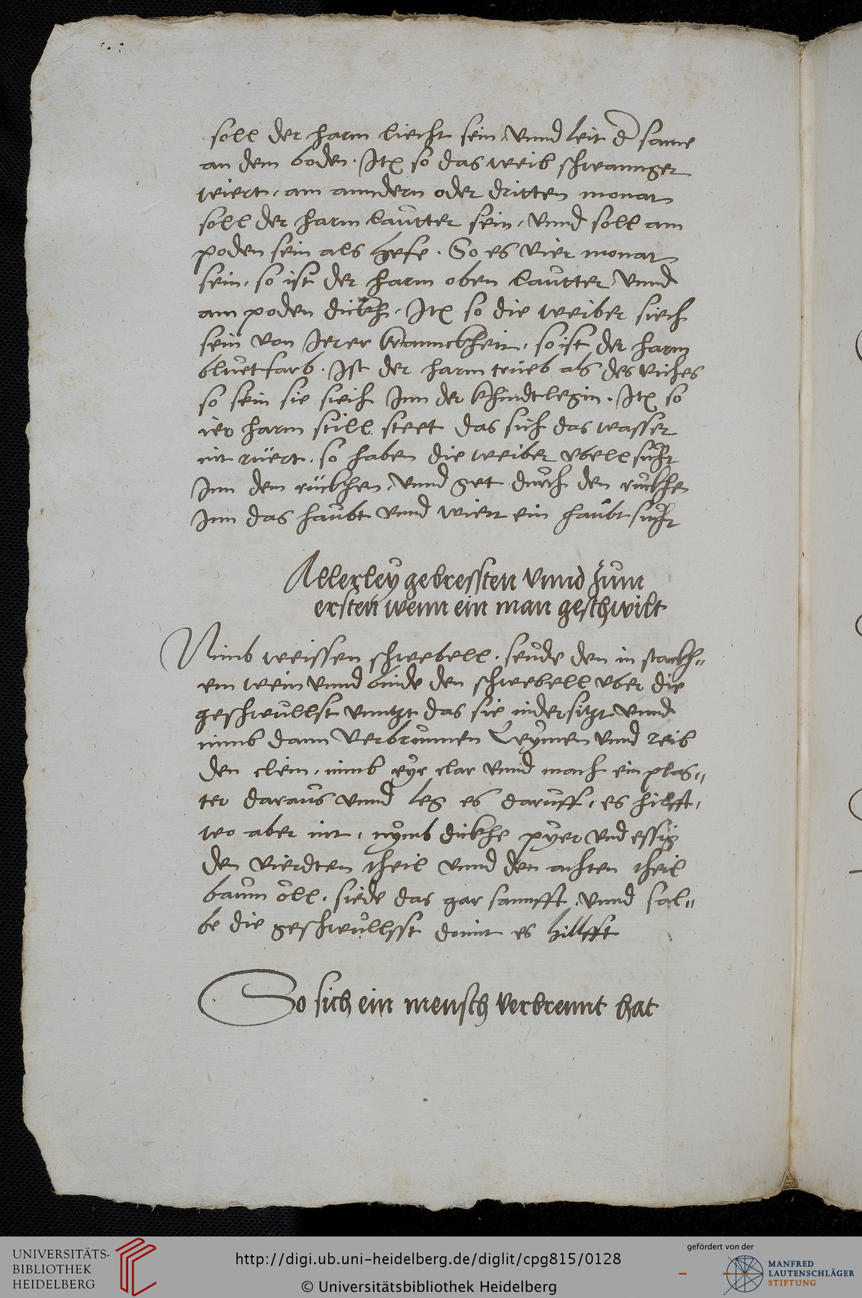 soll der harm liecht sein, Vnnd leit d͛ same
an dem boden. Itꝫ so das weib schwannger
wiert, am anndern oder dritten monat
soll der harm lautter sein, vnnd soll am
poden sein als hefe. So es vier monat
sein, so ist der harm oben lautter Vnnd
am poden dickh. Itꝫ so die weiber siech
sein von Ierer kranncktheit, so ist der harm
bluetfarb. Ist der harm trüeb als des viches
so sein sie siech Inn der khindtlegin. Itꝫ so
ier harm still steet das sich das wasser
nit rüert, so haben die weiber vbell sucht
Inn dem rückhen, vnnd get durch den ruckhe
Inn das haubt vnnd wiert ein haubtsucht
Allerley gebressten Vnnd zum
ersten wenn ein man geschwilt
Nimb weissen schwebell. seude den in starckh-
em wein vnnd binde den schwebell vber die
geschwullst vnntzt das sie nidersitzt vnnd
nimb dann Verbrunnen Leymen vnnd reib
den clein, nimb eyr clar vnnd mach ein plas-
ter daraus vnnd leg es daruff, es hilfft,
wo aber nit, nymb dickhe pyer vnd essig
den vierdten theil vnnd den achten theil
baum öll, siede das gar sannfft, vnnd sal-
be die geschwullsst domit es hillfft
So sich ein mensch verbrennt hat
UNIVERSITÄTS-
BIBLIOTHEK
HEIDELBERG
http://digi.ub.uni-heidelberg.de/diglit/cpg815/0128
© Universitätsbibliothek Heidelberg
gefördert von der
MANFRED
LAUTENSCHLÄGER
STIFTUNG